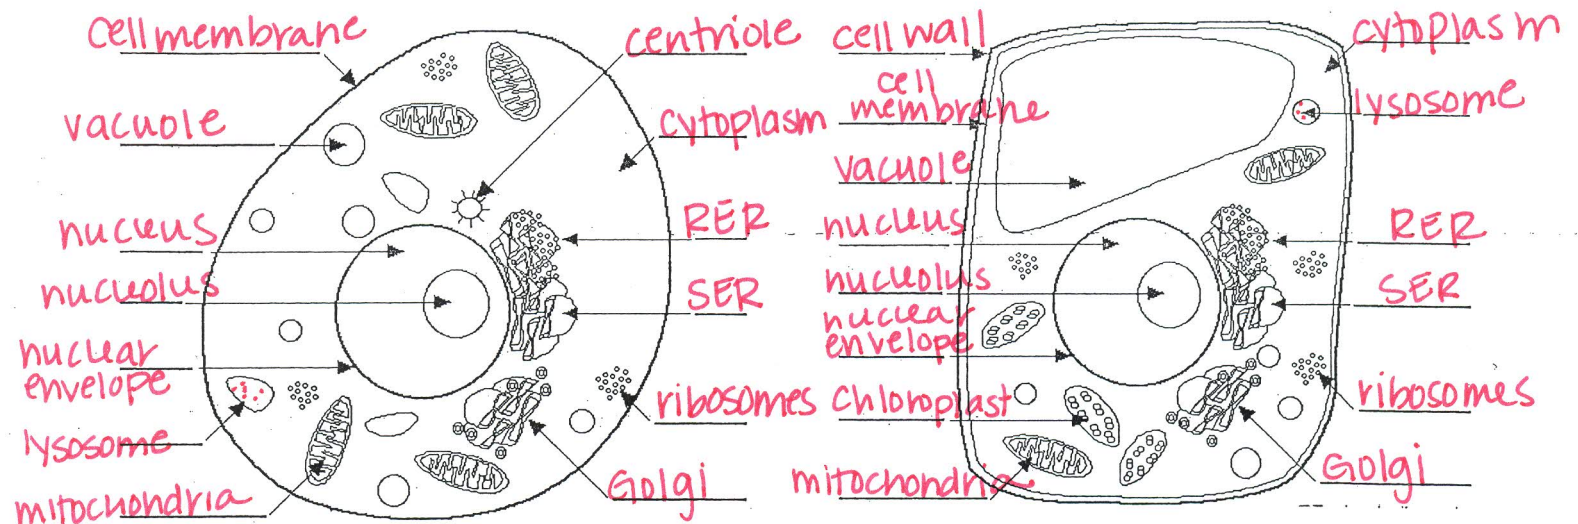 cell membrane
vacuole
nucleus
nucleolus
nuclear
envelope
lysosome
mitochondria
centriole
cytoplasm
RER
SER
ribosomes
Golgi
cell wall
cell
membrane
vacuole
nucleus
nucleolus
nuclear
envelope
Chloroplast
mitochondria
cytoplasm
lysosome
RER
SER
ribosomes
Golgi